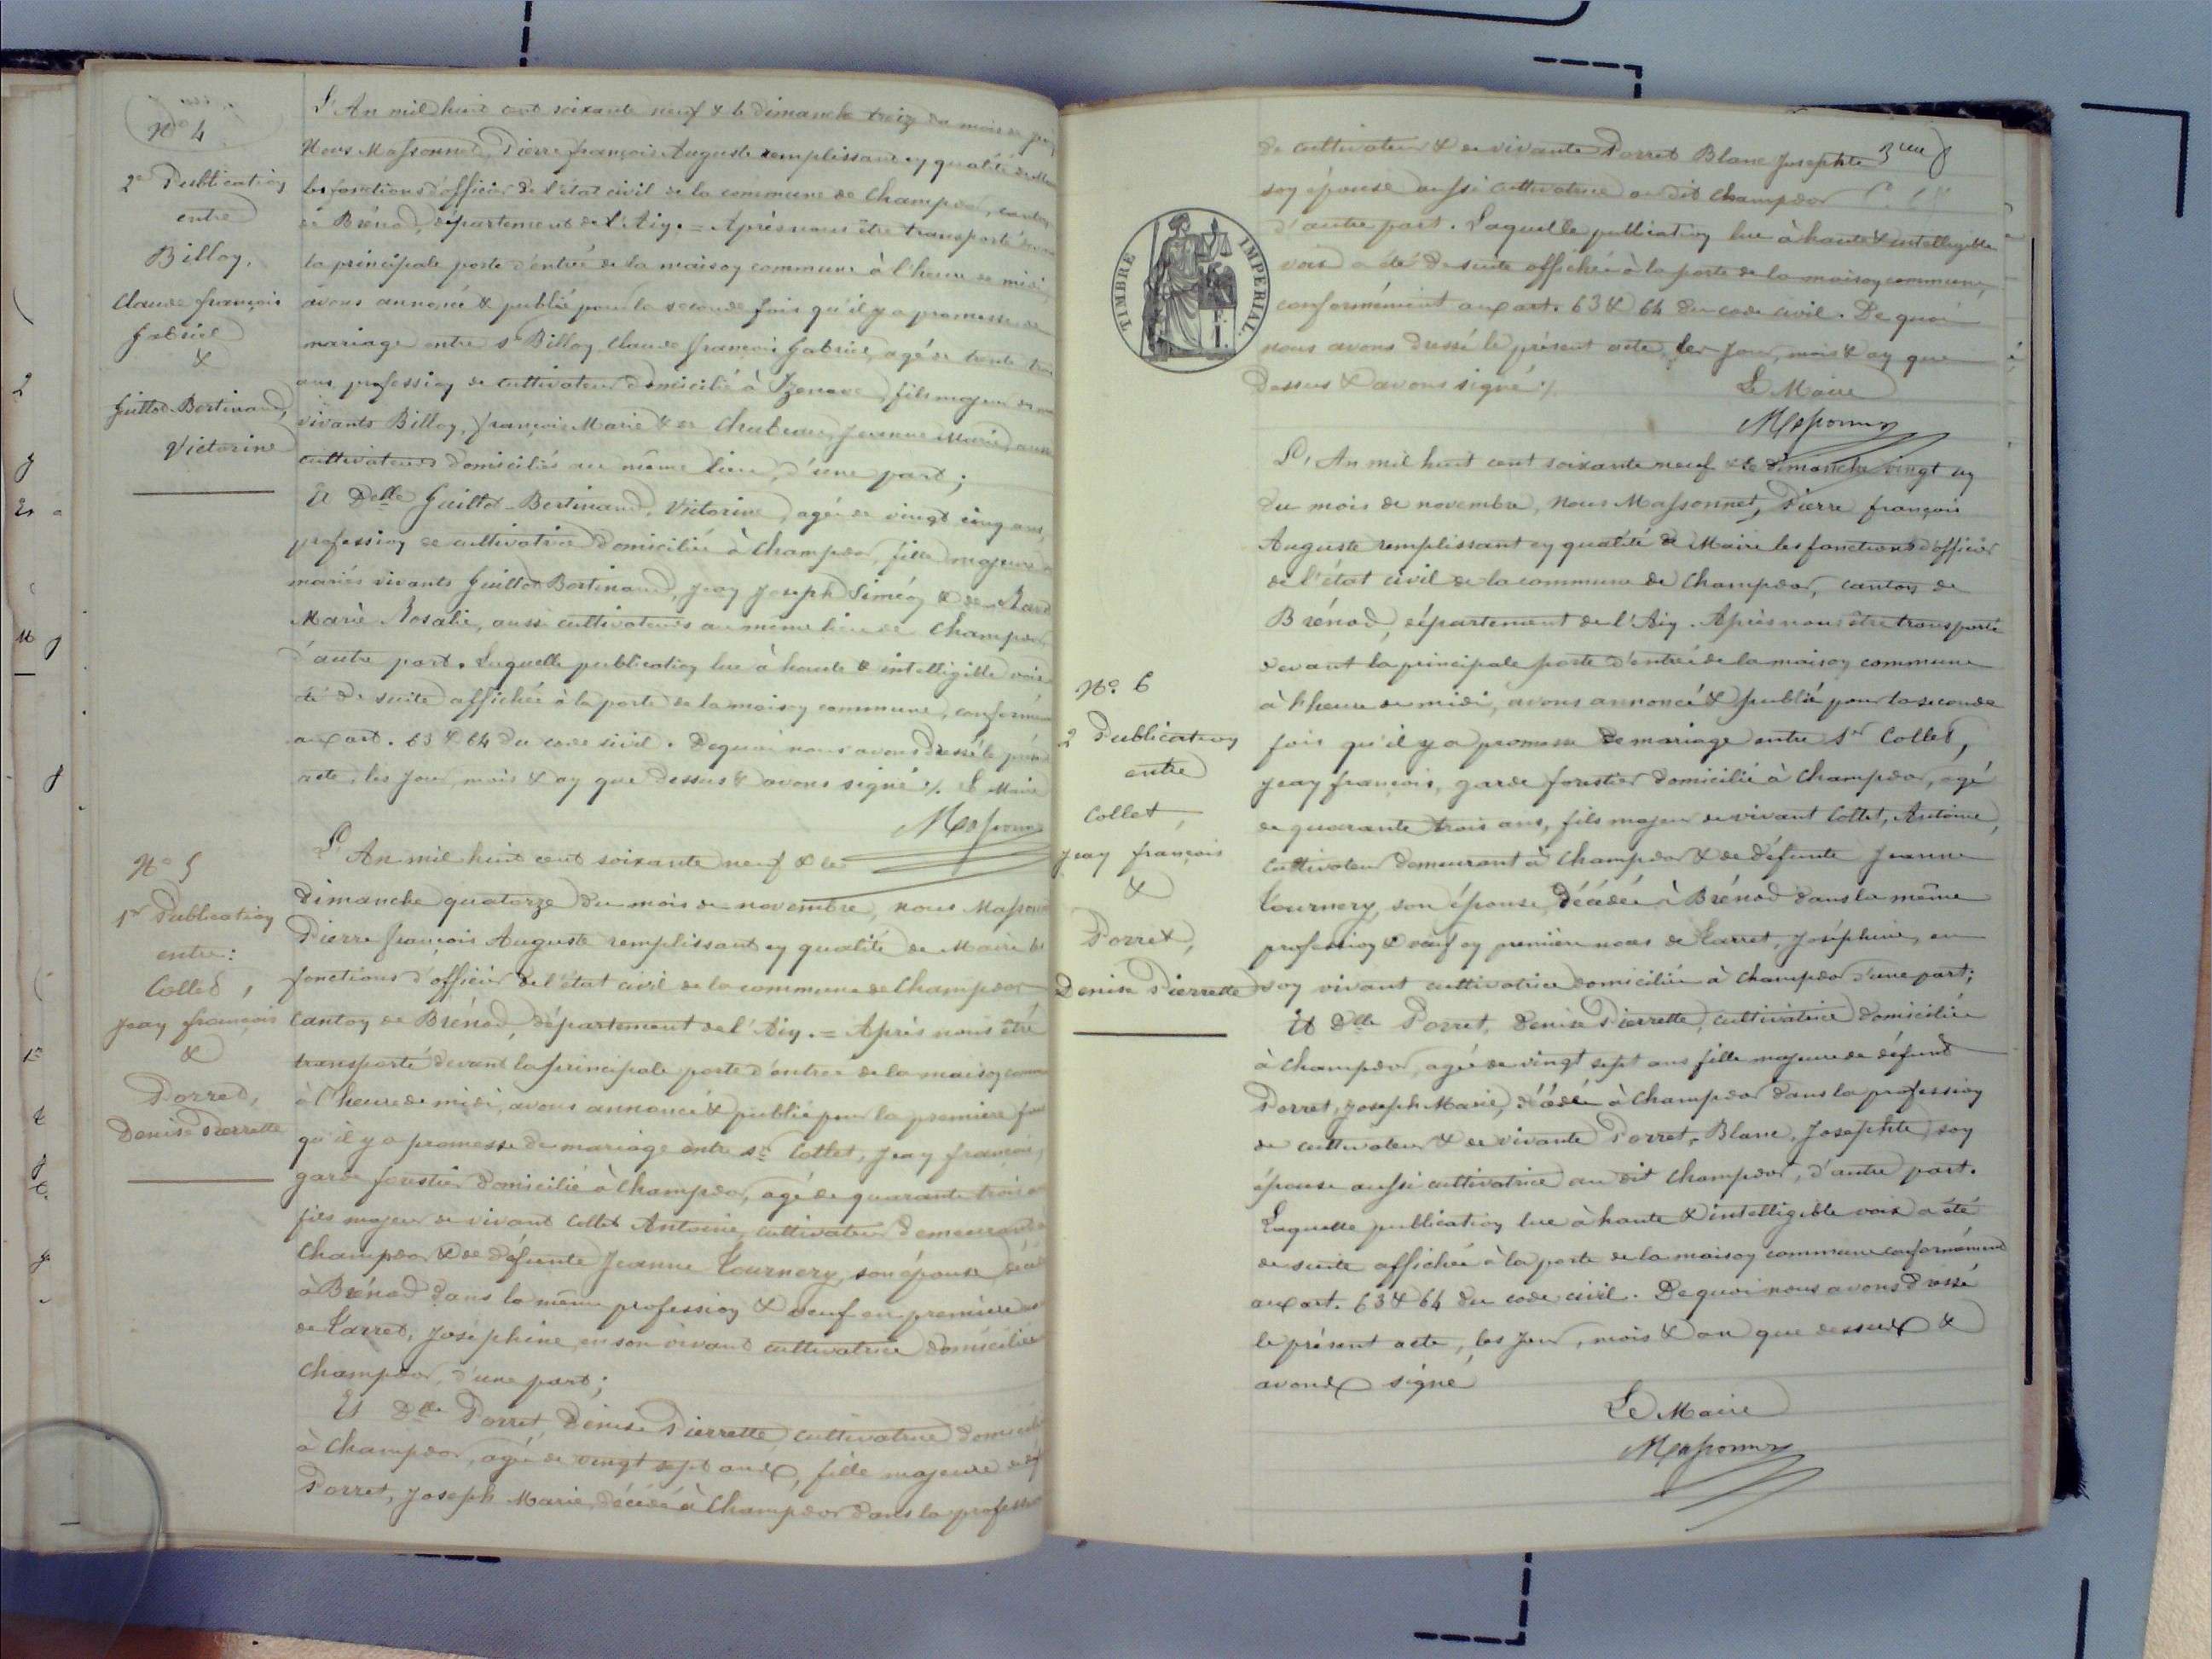 N° 4
2e Publication
entre
Billoy,
Claude françois
Gabriel
&
Guillot-Bertinand,
Victorine
L'An mil huit cent soixante neuf & le dimanche treize du mois de
Nous Massonnet, Pierre françois Auguste remplissant en qualité de Maire
les fonctions d'officier de l'état civil de la commune de Champdor, canton
de Brénod, département de l'Ain. = Après nous être transporté devant
la principale porte d'entrée de la maison commune à l'heure de midi,
avons annoncé & publié pour la seconde fois qu'il y a promesse de
mariage entre s Billoy, Claude françois Gabriel, agé de trente trois
ans, profession de cultivateur domicilié à Izenave, fils majeur de
vivants Billoy, françois Marie & de Chabeau, Jeanne Marie,
cultivateurs domiciliés au même lieu, d'une part;
Et Delle Guillot-Bertinand, Victorine, agée de vingt cinq ans,
profession de cultivatrice domiciliée à Champdor, fille majeure
mariés vivants Guillot Bertinand, Jean Joseph Siméon & de
Marie Rosalie, aussi cultivateurs au même lieu de Champdor,
d'autre part. Laquelle publication lue à haute & intelligible voix
été de suite affichée à la porte de la maison commune, conformé
aux art. 63 & 64 du code civil. De quoi nous avons dressé le présent
acte, les jour, mois & an que dessus & avons signé ./. Le Maire
Massonnet
N° 5
1re Publication
entre:
Collet,
Jean françois
&
Porret,
Denise Pierrette
L'An mil huit cent soixante neuf & le
dimanche quatorze du mois de novembre, nous Massonnet
Pierre françois Auguste remplissant en qualité de Maire les
fonctions d'officier de l'état civil de la commune de Champdor
canton de Brénod, département de l'Ain. = Après nous être
transporté devant la principale porte d'entrée de la maison commune
à l'heure de midi, avons annoncé & publié pour la première fois
qu'il y a promesse de mariage entre sr Collet, Jean françois,
garde forestier domicilié à Champdor, agé de quarante trois ans
fils majeur de vivant Collet Antoine, cultivateur demeurant à
Champdor & de défunte Jeanne Tournery, son épouse décédée
à Brénod dans la même profession & veuf en première
de Carret, Joséphine, en son vivant cultivatrice domiciliée
Champdor, d'une part;
Et Dlle Porret, Denise Pierrette, cultivatrice domiciliée
à Champdor, agée de vingt sept ans, fille majeure de
Porret, Joseph Marie, décédé à Champdor dans la profession
3me f
de cultivateur & de vivante Porret Blanc Josephte
son épouse aussi cultivatrice au dit Champdor
d'autre part. Laquelle publication lue à haute & intelligible
voix a été de suite affichée à la porte de la maison commune,
conformément aux art. 63 & 64 du code civil. De quoi
nous avons dressé le présent acte, les jour, mois & an que
dessus & avons signé ./. Le Maire
Massonnet
TIMBRE IMPÉRIAL.
N° 6
2 Publication
entre
Collet,
Jean françois
&
Porret,
Denise Pierrette
L'An mil huit cent soixante neuf & le dimanche vingt un
du mois de novembre, nous Massonnet, Pierre françois
Auguste remplissant en qualité de Maire les fonctions d'officier
de l'état civil de la commune de Champdor, canton de
Brénod, département de l'Ain. Après nous être transporté
devant la principale porte d'entrée de la maison commune
à l'heure de midi, avons annoncé & publié pour la seconde
fois qu'il y a promesse de mariage entre Sr Collet,
Jean françois, garde forestier domicilié à Champdor, agé
de quarante trois ans, fils majeur de vivant Collet, Antoine,
cultivateur demeurant à Champdor & de défunte Jeanne
Tournery, son épouse, décédée à Brénod dans la même
profession & veuf en première noces de Carret, Joséphine, en
son vivant cultivatrice domiciliée à Champdor d'une part;
Et Dlle Porret, Denise Pierrette, cultivatrice domiciliée
à Champdor, agée de vingt sept ans fille majeure de défunt
Porret, Joseph Marie, décédé à Champdor dans la profession
de cultivateur & de vivante Porret-Blanc, Josephte, son
épouse aussi cultivatrice au dit Champdor, d'autre part.
Laquelle publication lue à haute & intelligible voix a été
de suite affichée à la porte de la maison commune conformément
aux art. 63 & 64 du code civil. De quoi nous avons dressé
le présent acte, les jour, mois & an que dessus &
avons signé
Le Maire
Massonnet